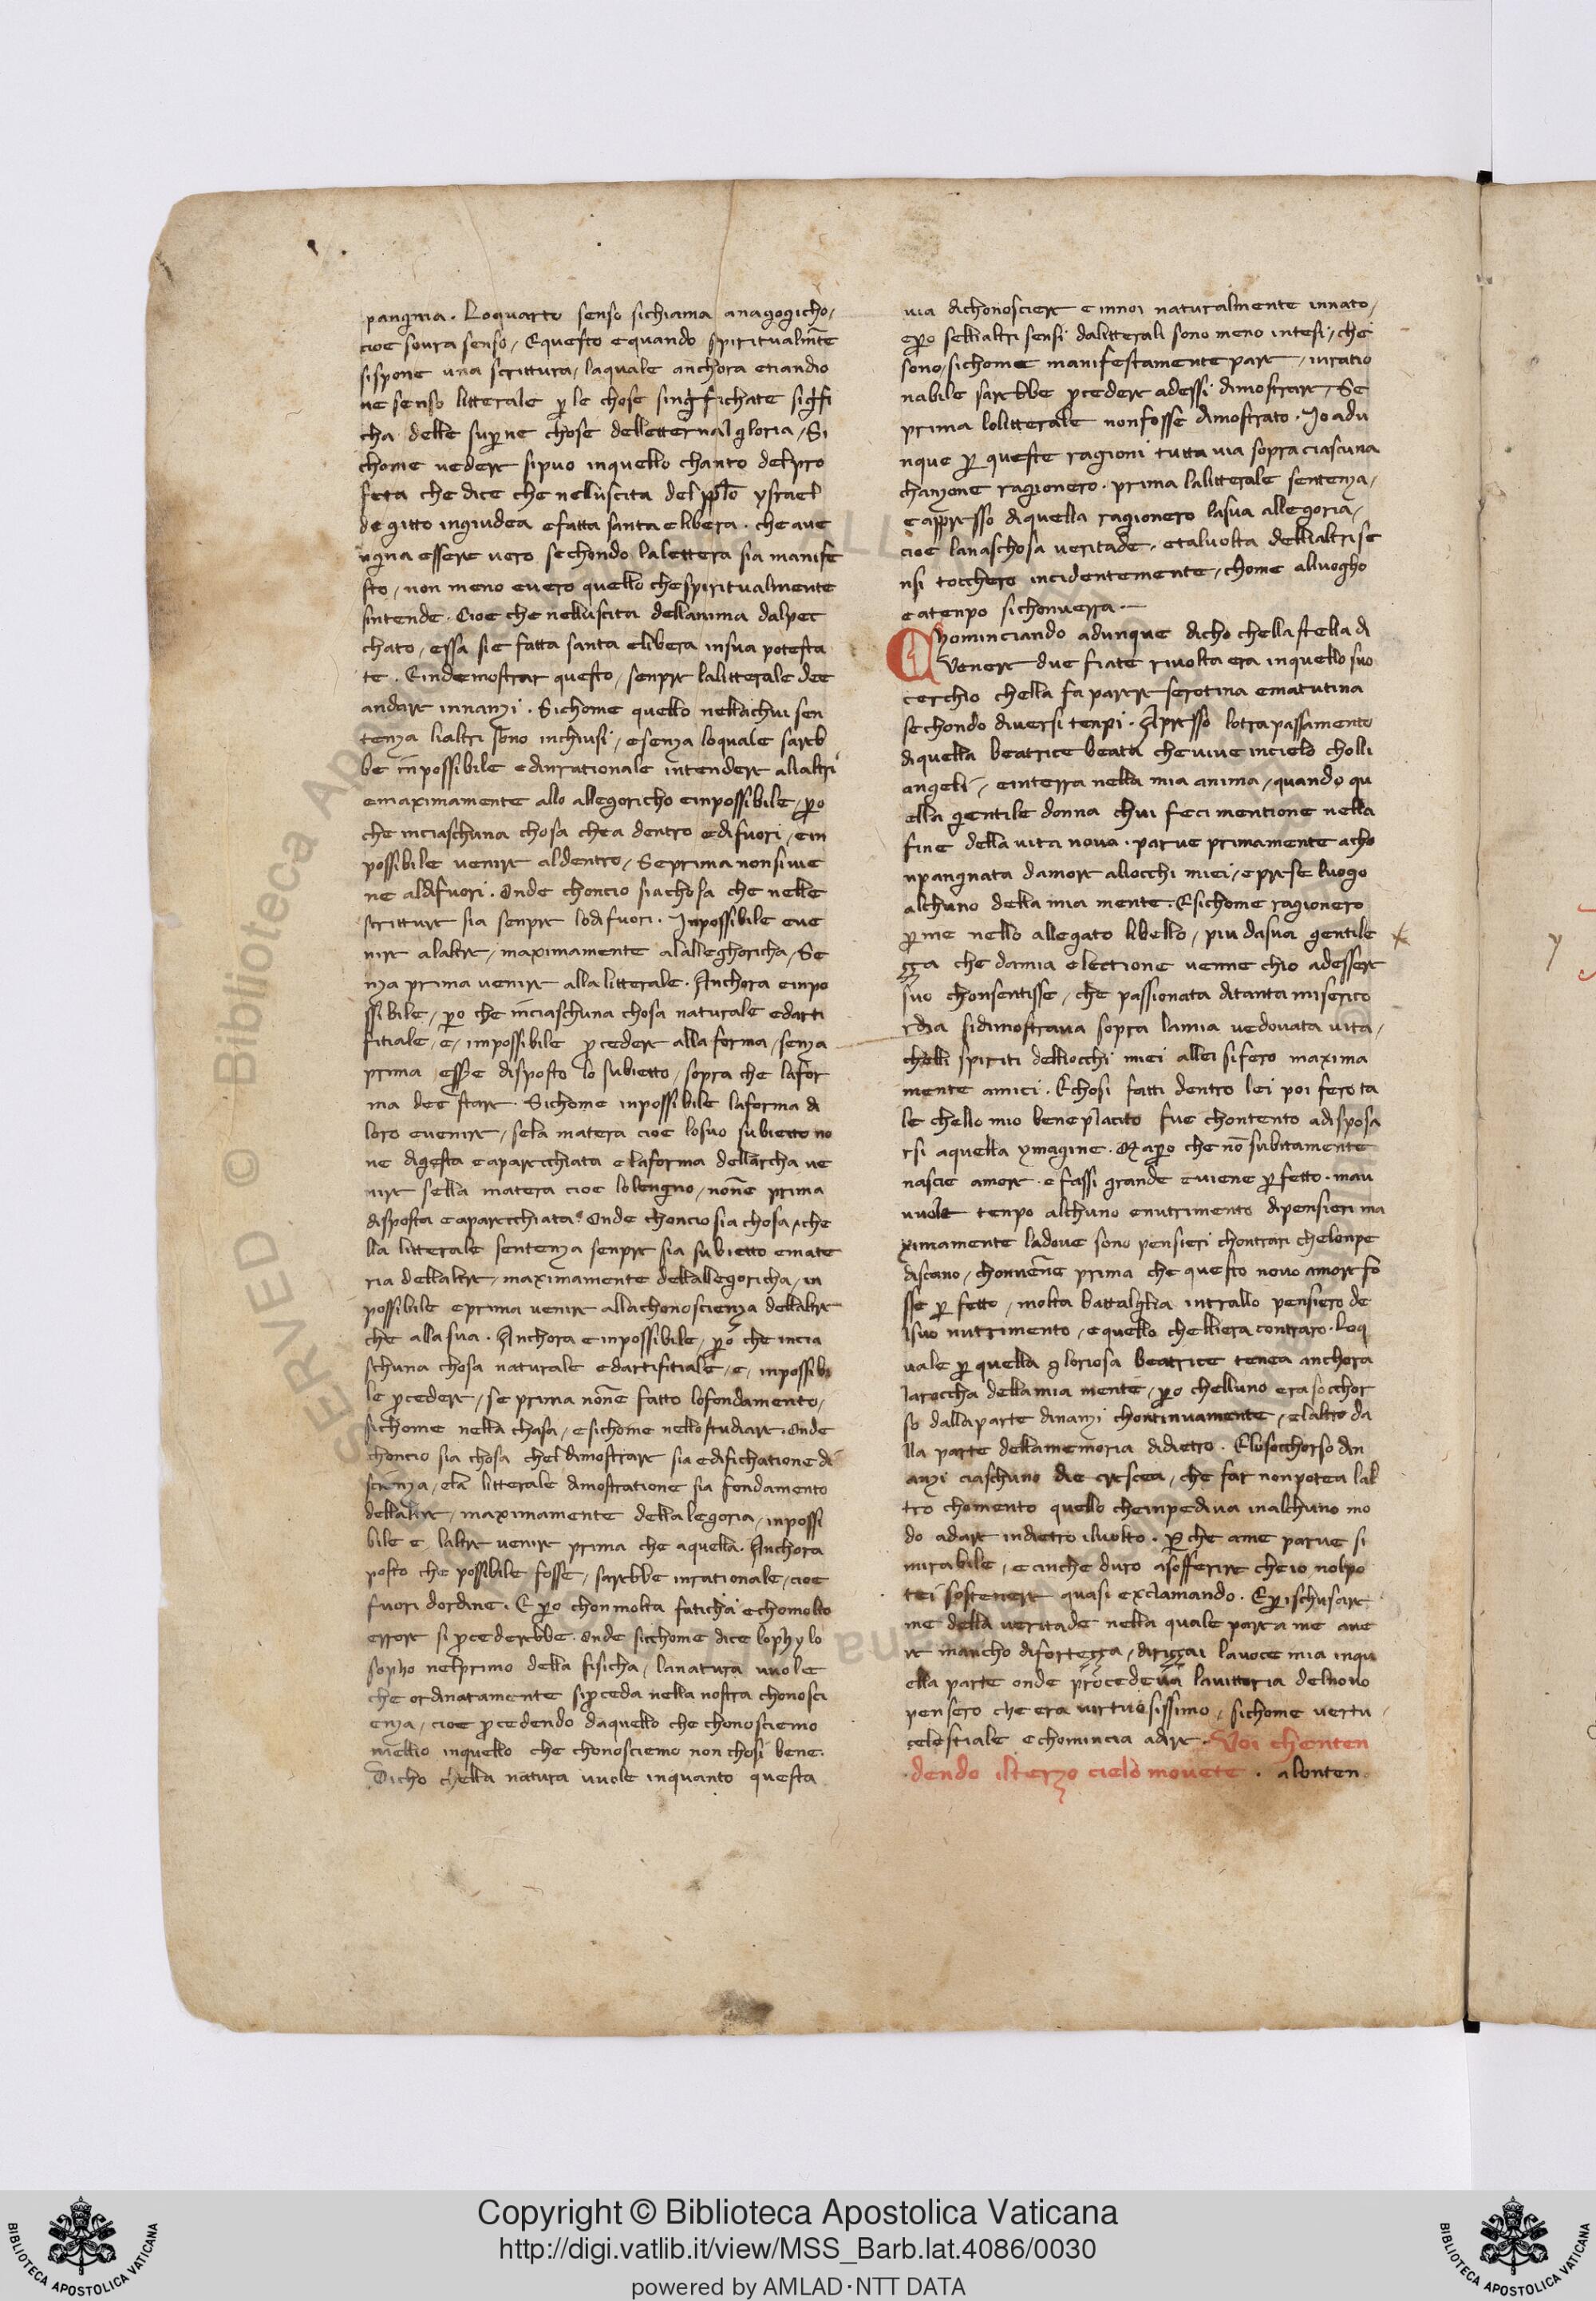 pangnia. Loquarto senso sichiama anagogicho/
cioe soura senso/ Equesto equando spiritualmēte
sispone una scrittura/ laquale anchora etiandio
ne senso litterale p̲ le chose singifichate sigifi
cha delle sup̲ne chose delletternal gloria/ Si
chome vedere sipuo inquello chanto delpro
feta che dice che nelluscita del pplo ysrael
degitto ingiudea efatta santa elibera. che ave
ngna essere vero sechondo lalettera sia manife
sto/ non meno evero quello chespiritualmente
sintende. Cioe che nelluscita dellanima dalpec
chato/ essa sie fatta santa elibera insua potesta
te. Eindemostrar questo/ senpre lalitterale dee
andare innanzi. Sichome quello nellachui sen
tenza lialtri sono inchiusi/ esenza loquale sareb
be inpossibile edinrationale intendere alialtri
emaximamente allo allegoricho einpossibile/ p̲o
che inciaschuna chosa chea dentro edifuori/ ein
possibile venire aldentro/ Seprima nonsivie
ne aldifuori. Onde choncio siachosa che nelle
scritture sia senpre lodifuori. Inpossibile eve
nire alaltre/ maximamente alalleghoricha/ Se
nza prima venire allalitterale. Anchora einpo
ssibile/ p̲o che inciaschuna chosa naturale edarti
fitiale/ e/ impossibile p̲cedere alla forma/ senza
prima essere disposto lo subietto/ sopra che lafor
ma dee stare. Sichome inpossibile laforma di
loro evenire/ sela matera cioe losuo subietto no
ne digesta eaparecchiata elaforma dellarcha ve
nire sella matera cioe lolengno/ none prima
disposta eaparecchiata. Onde choncio sia chosa/ che
lla litterale sentenza senpre sia subietto emate
ria dellaltre/ maximamente dellallegoricha/ in
possibile eprima venire allachonoscienza dellaltre
che alla sua. Anchora einpossibile/ p̲o che incia
schuna chosa naturale edartifitiale/ e/ inpossibi
le p̲cedere/ se prima none fatto lofondamento/
sichome nella chasa/ esichome nello studiare. Onde
choncio sia chosa cheldimostrare sia edifichatione di
scienza/ ela litterale dimostratione sia fondamento
dellaltre/ maximamente dellalegoria/ inpossi
bile e/ laltre venire prima che aquella. Anchora
posto che possibile fosse/ sarebbe inrationale/ cioe
fuori dordine. E p̲o chonmolta faticha echomolto
errore si p̲cederebbe. Onde sicchome dice lophylo
sopho nelprimo della fisicha/ lanatura vuole
che ordinatamente sip̲ceda nella nostra chonosci
enza/ cioe p̲cedendo daquello che chonosciemo
mellio inquello che chonosciemo non chosi bene.
Dicho chella natura vuole inquanto questa
via dichonosciere e innoi naturalmente innato/
ep̲o selialtri sensi dalitterali sono meno intesi/ che
sono/ sichome manifestamente pare/ inratio
nabile sarebbe p̲cedere adessi dimostrare/ Se
prima lolitterale nonfosse dimostrato. Io adu
nque p̲ queste ragioni tutta via sopraciascuna
chanzone ragionero. prima lalitterale sentenza/
eappresso diquella ragionero lasua allegoria/
cioe lanaschosa veritade/ etalvolta dellialtri se
nsi tocchero incidentemente/ chome alluogho
eatenpo sichonverra
Chominciando adunque dicho chella stella di
Venere due fiate rivolta era inquello suo
cerchio chella fa parere serotina ematutina
sechondo diversi tenpi. Apresso lotrapassamento
diquella beatrice beata chevive incielo cholli
angeli/ einterra nella mia anima/ quando qu
ella gentile donna chui feci mentione nella
fine della vita nova. parve primamente acho
npangnata damore allocchi miei/ eprese luogo
alchuno della mia mente. Esichome ragionero
p̲ me nello allegato libello/ piu dasua gentile
zza che damia electione venne chio adessere
suo chonsentisse/ che passionata ditanta miserico
rdia sidimostrava sopra lamia vedovata vita/
chelli spiriti delliocchi miei allei sifero maxima
mente amici. Echosi fatti dentro lei poi ferota
le chello mio beneplacito fue chontento adisposa
rsi aquella ymagine. Map̲o che nō subitamente
nascie amore. efassi grande eviene p̲fetto. mau
vuole tenpo alchuno enutrimento dipensieri ma
ximamente ladove sono pensieri chontrari chelonpe
discano/ chonviene prima che questo novo amore fo
sse p̲fetto/ molta battalglia intrallo pensiero de
lsuo nutrimento/ equello chelliera contraro. Loq
uale p̲ quella gloriosa beatrice tenea anchora
larocha dellamia mente/ p̲o chelluno era socchor
so dallaparte dinanzi chontinuamente/ elaltro da
lla parte dellamemoria didietro. Elusocchorso din
anzi ciaschuno die crescea/ che far nonpotea lal
tro chomento quello cheinpediva inalchuno mo
do adare indietro ilvolto. p̲ che ame parve si
mirabile/ e anche duro asofferire cheio nolpo
tei sostenere quasi exclamando. Ep̲ischusare
me della veritade nella quale parea me ave
re mancho difortezza/ dirizzai lavoce mia inqu
ella parte onde procedeva lavittoria delnovo
pensero che era virtuosissimo/ sichome vertu
celestiale echomincia adire. Voi chenten
dendo ilterzo cielo movete. alonten
Copyright © Biblioteca Apostolica Vaticana
http://digi.vatlib.it/view/MSS_Barb.lat.4086/0030
powered by AMLAD·NTT DATA
BIBLIOTECA APOSTOLICA VATICANA
BIBLIOTECA APOSTOLICA VATICANA